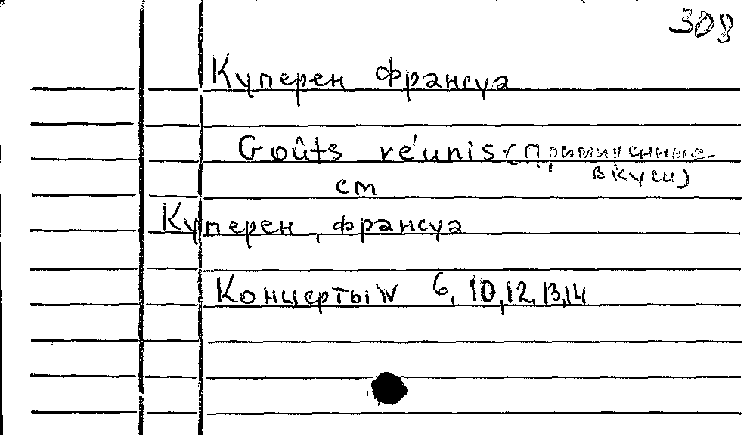 308
Куперен Франсуа
Goûts réunis (Примиренные
вкусы)
см
Куперен, Франсуа
Концерты N 6, 10, 12, 13, 14